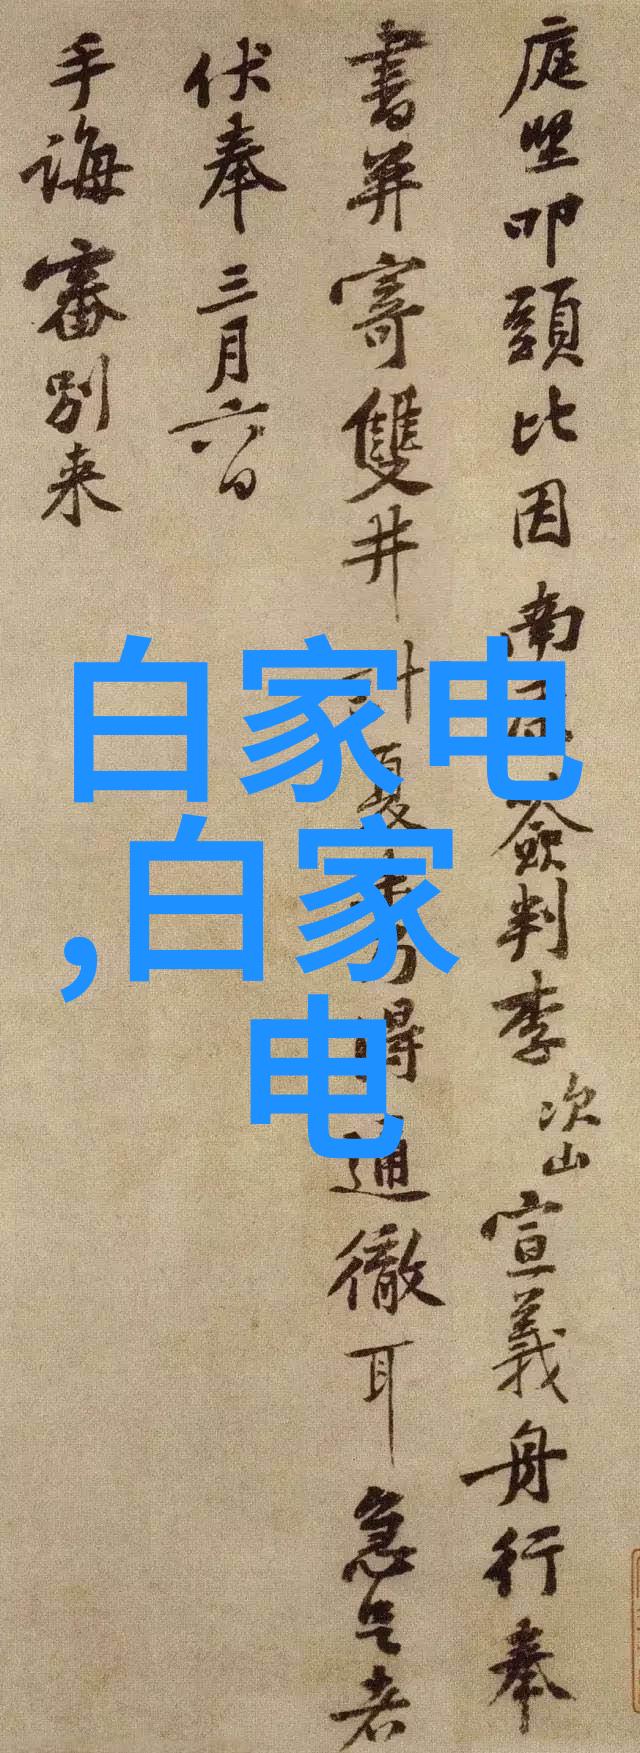 庭堅叩頭比因南簽判李次山宣義舟行奉
書并寄雙井夏得通徹耳急足者
伏奉三月六日
手誨審別来
白家电
,白家
电